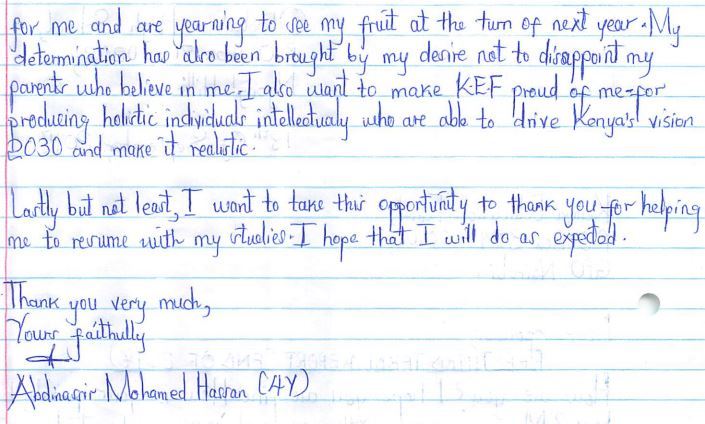 for me and are yearning to see my fruit at the turn of next year. My
determination has also been brought by my desire not to disappoint my
parents who believe in me. I also want to make K.E.F proud of me-for
producing holistic individuals intellectualy who are able to drive Kenya's vision
2030 and make it realistic.
Lastly but not least, I want to take this opportunity to thank you for helping
me to resume with my studies. I hope that I will do as expected.
Thank you very much,
Yours faithfully
Abdinasir Mohamed Hassan (4Y)